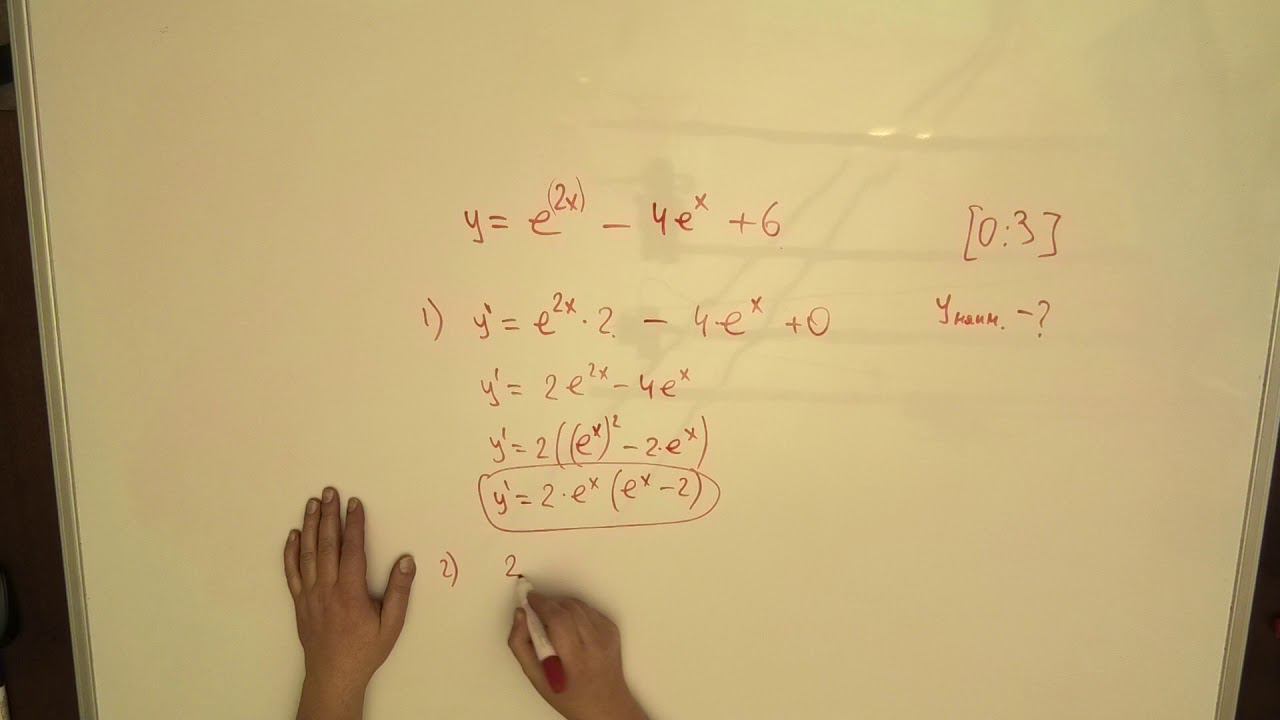 y = e^(2x) − 4e^x + 6 [0:3]
1) y' = e^2x · 2 − 4·e^x + 0 Yнаим. − ?
y' = 2e^2x − 4e^x
y' = 2((e^x)^2 − 2·e^x)
y' = 2·e^x (e^x − 2)
2) 2